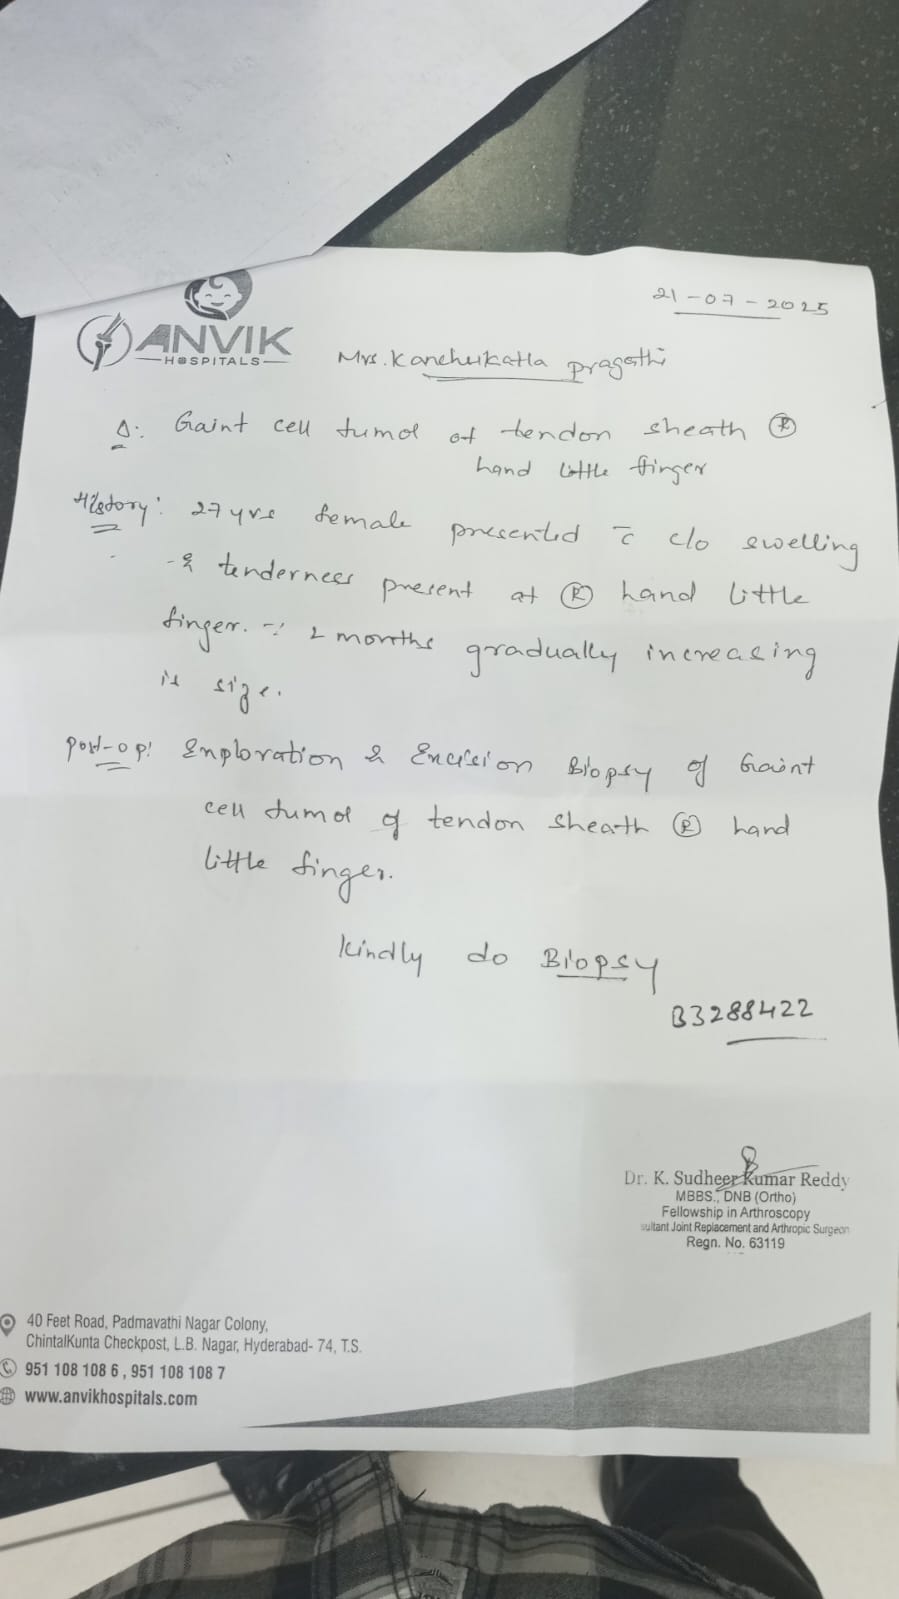 21-07-2025
ANVIK
HOSPITALS
Mrs. Kanchukatla pragathi
Δ: Gaint cell tumol of tendon sheath Ⓡ
hand little finger
History: 27 yrs female presented c̄ c/o swelling
& tenderness present at Ⓡ hand little
finger. 2 months gradually increasing
is size.
Post-op: Exploration & Excision Biopsy of Gaint
cell tumol of tendon sheath Ⓡ hand
little finger.
Kindly do Biopsy
B3288422
Dr. K. Sudheer Kumar Reddy
MBBS., DNB (Ortho)
Fellowship in Arthroscopy
sultant Joint Replacement and Arthropic Surgeon
Regn. No. 63119
40 Feet Road, Padmavathi Nagar Colony,
ChintalKunta Checkpost, L.B. Nagar, Hyderabad- 74, T.S.
951 108 108 6 , 951 108 108 7
www.anvikhospitals.com